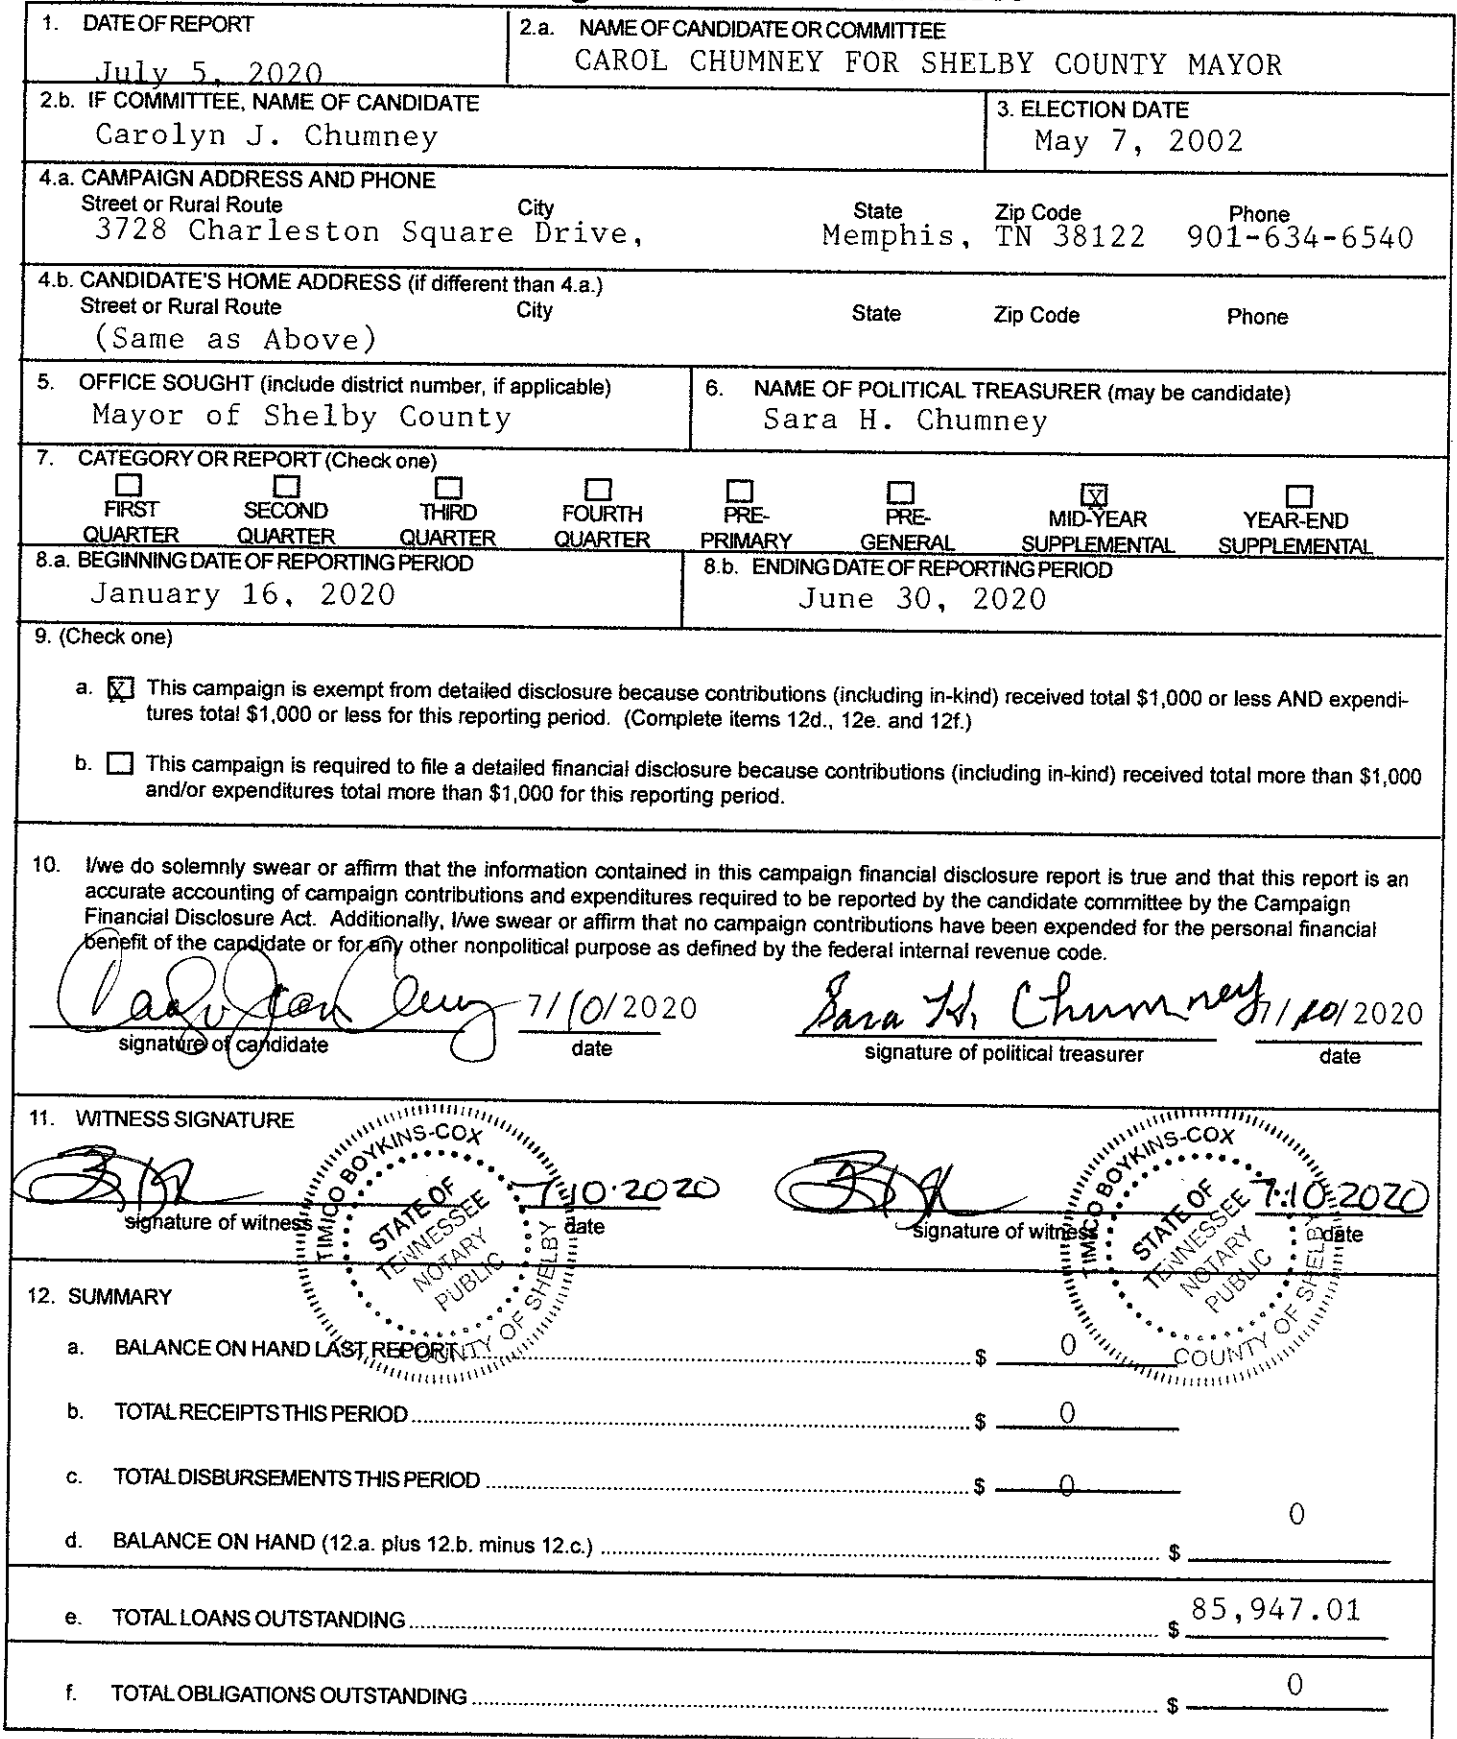 1. DATE OF REPORT
July 5, 2020
2.a. NAME OF CANDIDATE OR COMMITTEE
CAROL CHUMNEY FOR SHELBY COUNTY MAYOR
2.b. IF COMMITTEE, NAME OF CANDIDATE
Carolyn J. Chumney
3. ELECTION DATE
May 7, 2002
4.a. CAMPAIGN ADDRESS AND PHONE
Street or Rural Route City State Zip Code Phone
3728 Charleston Square Drive, Memphis, TN 38122 901-634-6540
4.b. CANDIDATE'S HOME ADDRESS (if different than 4.a.)
Street or Rural Route City State Zip Code Phone
(Same as Above)
5. OFFICE SOUGHT (include district number, if applicable)
Mayor of Shelby County
6. NAME OF POLITICAL TREASURER (may be candidate)
Sara H. Chumney
7. CATEGORY OR REPORT (Check one)
X
FIRST SECOND THIRD FOURTH PRE- PRE- MID-YEAR YEAR-END
QUARTER QUARTER QUARTER QUARTER PRIMARY GENERAL SUPPLEMENTAL SUPPLEMENTAL
8.a. BEGINNING DATE OF REPORTING PERIOD
January 16, 2020
8.b. ENDING DATE OF REPORTING PERIOD
June 30, 2020
9. (Check one)
a. X This campaign is exempt from detailed disclosure because contributions (including in-kind) received total $1,000 or less AND expendi-
tures total $1,000 or less for this reporting period. (Complete items 12d., 12e. and 12f.)
b. This campaign is required to file a detailed financial disclosure because contributions (including in-kind) received total more than $1,000
and/or expenditures total more than $1,000 for this reporting period.
10. I/we do solemnly swear or affirm that the information contained in this campaign financial disclosure report is true and that this report is an
accurate accounting of campaign contributions and expenditures required to be reported by the candidate committee by the Campaign
Financial Disclosure Act. Additionally, I/we swear or affirm that no campaign contributions have been expended for the personal financial
benefit of the candidate or for any other nonpolitical purpose as defined by the federal internal revenue code.
7/10/2020 Sara H. Chumney 7/10/2020
signature of candidate date signature of political treasurer date
11. WITNESS SIGNATURE
7·10·2020 7·10·2020
signature of witness date signature of witness date
TIMICO BOYKINS-COX
STATE OF
TENNESSEE
NOTARY
PUBLIC
COUNTY OF SHELBY
TIMICO BOYKINS-COX
STATE OF
TENNESSEE
NOTARY
PUBLIC
COUNTY OF SHELBY
12. SUMMARY
a. BALANCE ON HAND LAST REPORT $ 0
b. TOTAL RECEIPTS THIS PERIOD $ 0
c. TOTAL DISBURSEMENTS THIS PERIOD $ 0
d. BALANCE ON HAND (12.a. plus 12.b. minus 12.c.) $ 0
e. TOTAL LOANS OUTSTANDING $ 85,947.01
f. TOTAL OBLIGATIONS OUTSTANDING $ 0